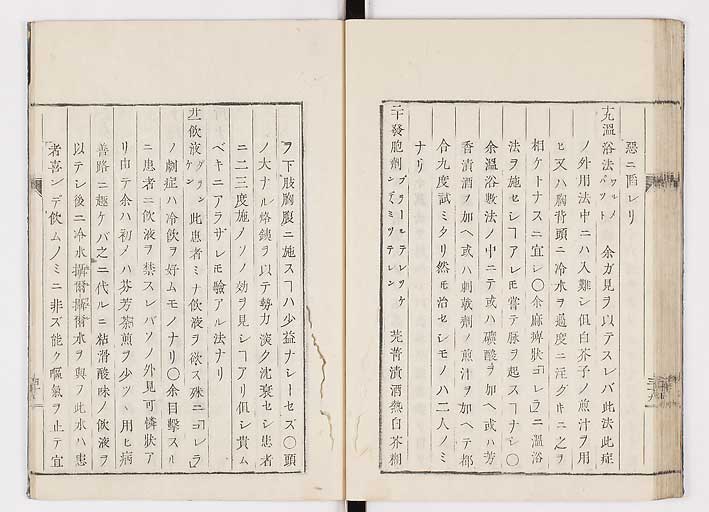 惡ニ陷レリ
十九溫浴法ワルメバツト 余ガ見ヲ以テスレバ此法此症
ノ外用法中ニハ入難シ但白芥子ノ煎汁ヲ用
ヒ又ハ胸背頭ニ冷水ヲ過度ニ注グキニ之ヲ
相ケトナスニ宜シ〇余麻痺狀「コレラ」ニ溫浴
法ヲ施セシヿアレモ嘗テ脉ヲ起スヿナシ〇
余溫浴數法ノ中ニテ或ハ礦酸ヲ加ヘ或ハ芳
香漬酒ヲ加ヘ或ハ刺戟劑ノ煎汁ヲ加ヘテ都
合九度試ミタリ然モ治セシモノハ二人ノミ
ナリ
二十發胞劑 芫菁漬酒熱白芥糊
ヲ下肢胸腹ニ施スヿハ少益ナシトセズ〇頭
ノ大ナル烙銕ヲ以テ勢力淡ク沈衰セシ患者
ニ二三度施ノソノ効ヲ見シヿアリ但シ貴ム
ベキニアラザレモ驗アル法ナリ
廿一飮液ダランケン 此患者ミナ飮液ヲ欲ス殊ニ「コレラ」
ノ劇症ハ冷飮ヲ好ムモノナリ〇余目擊スル
ニ患者ニ飮液ヲ禁スレバソノ外見可憐狀ア
リ由テ余ハ初メハ芬芳茶煎ヲ少ツヽ用ヒ病
善路ニ趣ケバ之ニ代ルニ粘滑酸味ノ飮液ヲ
以テシ後ニ冷水攝爾攝爾水ヲ與フ此水ハ患
者喜ンデ飮ムノミニ非ズ能ク嘔氣ヲ止テ宜